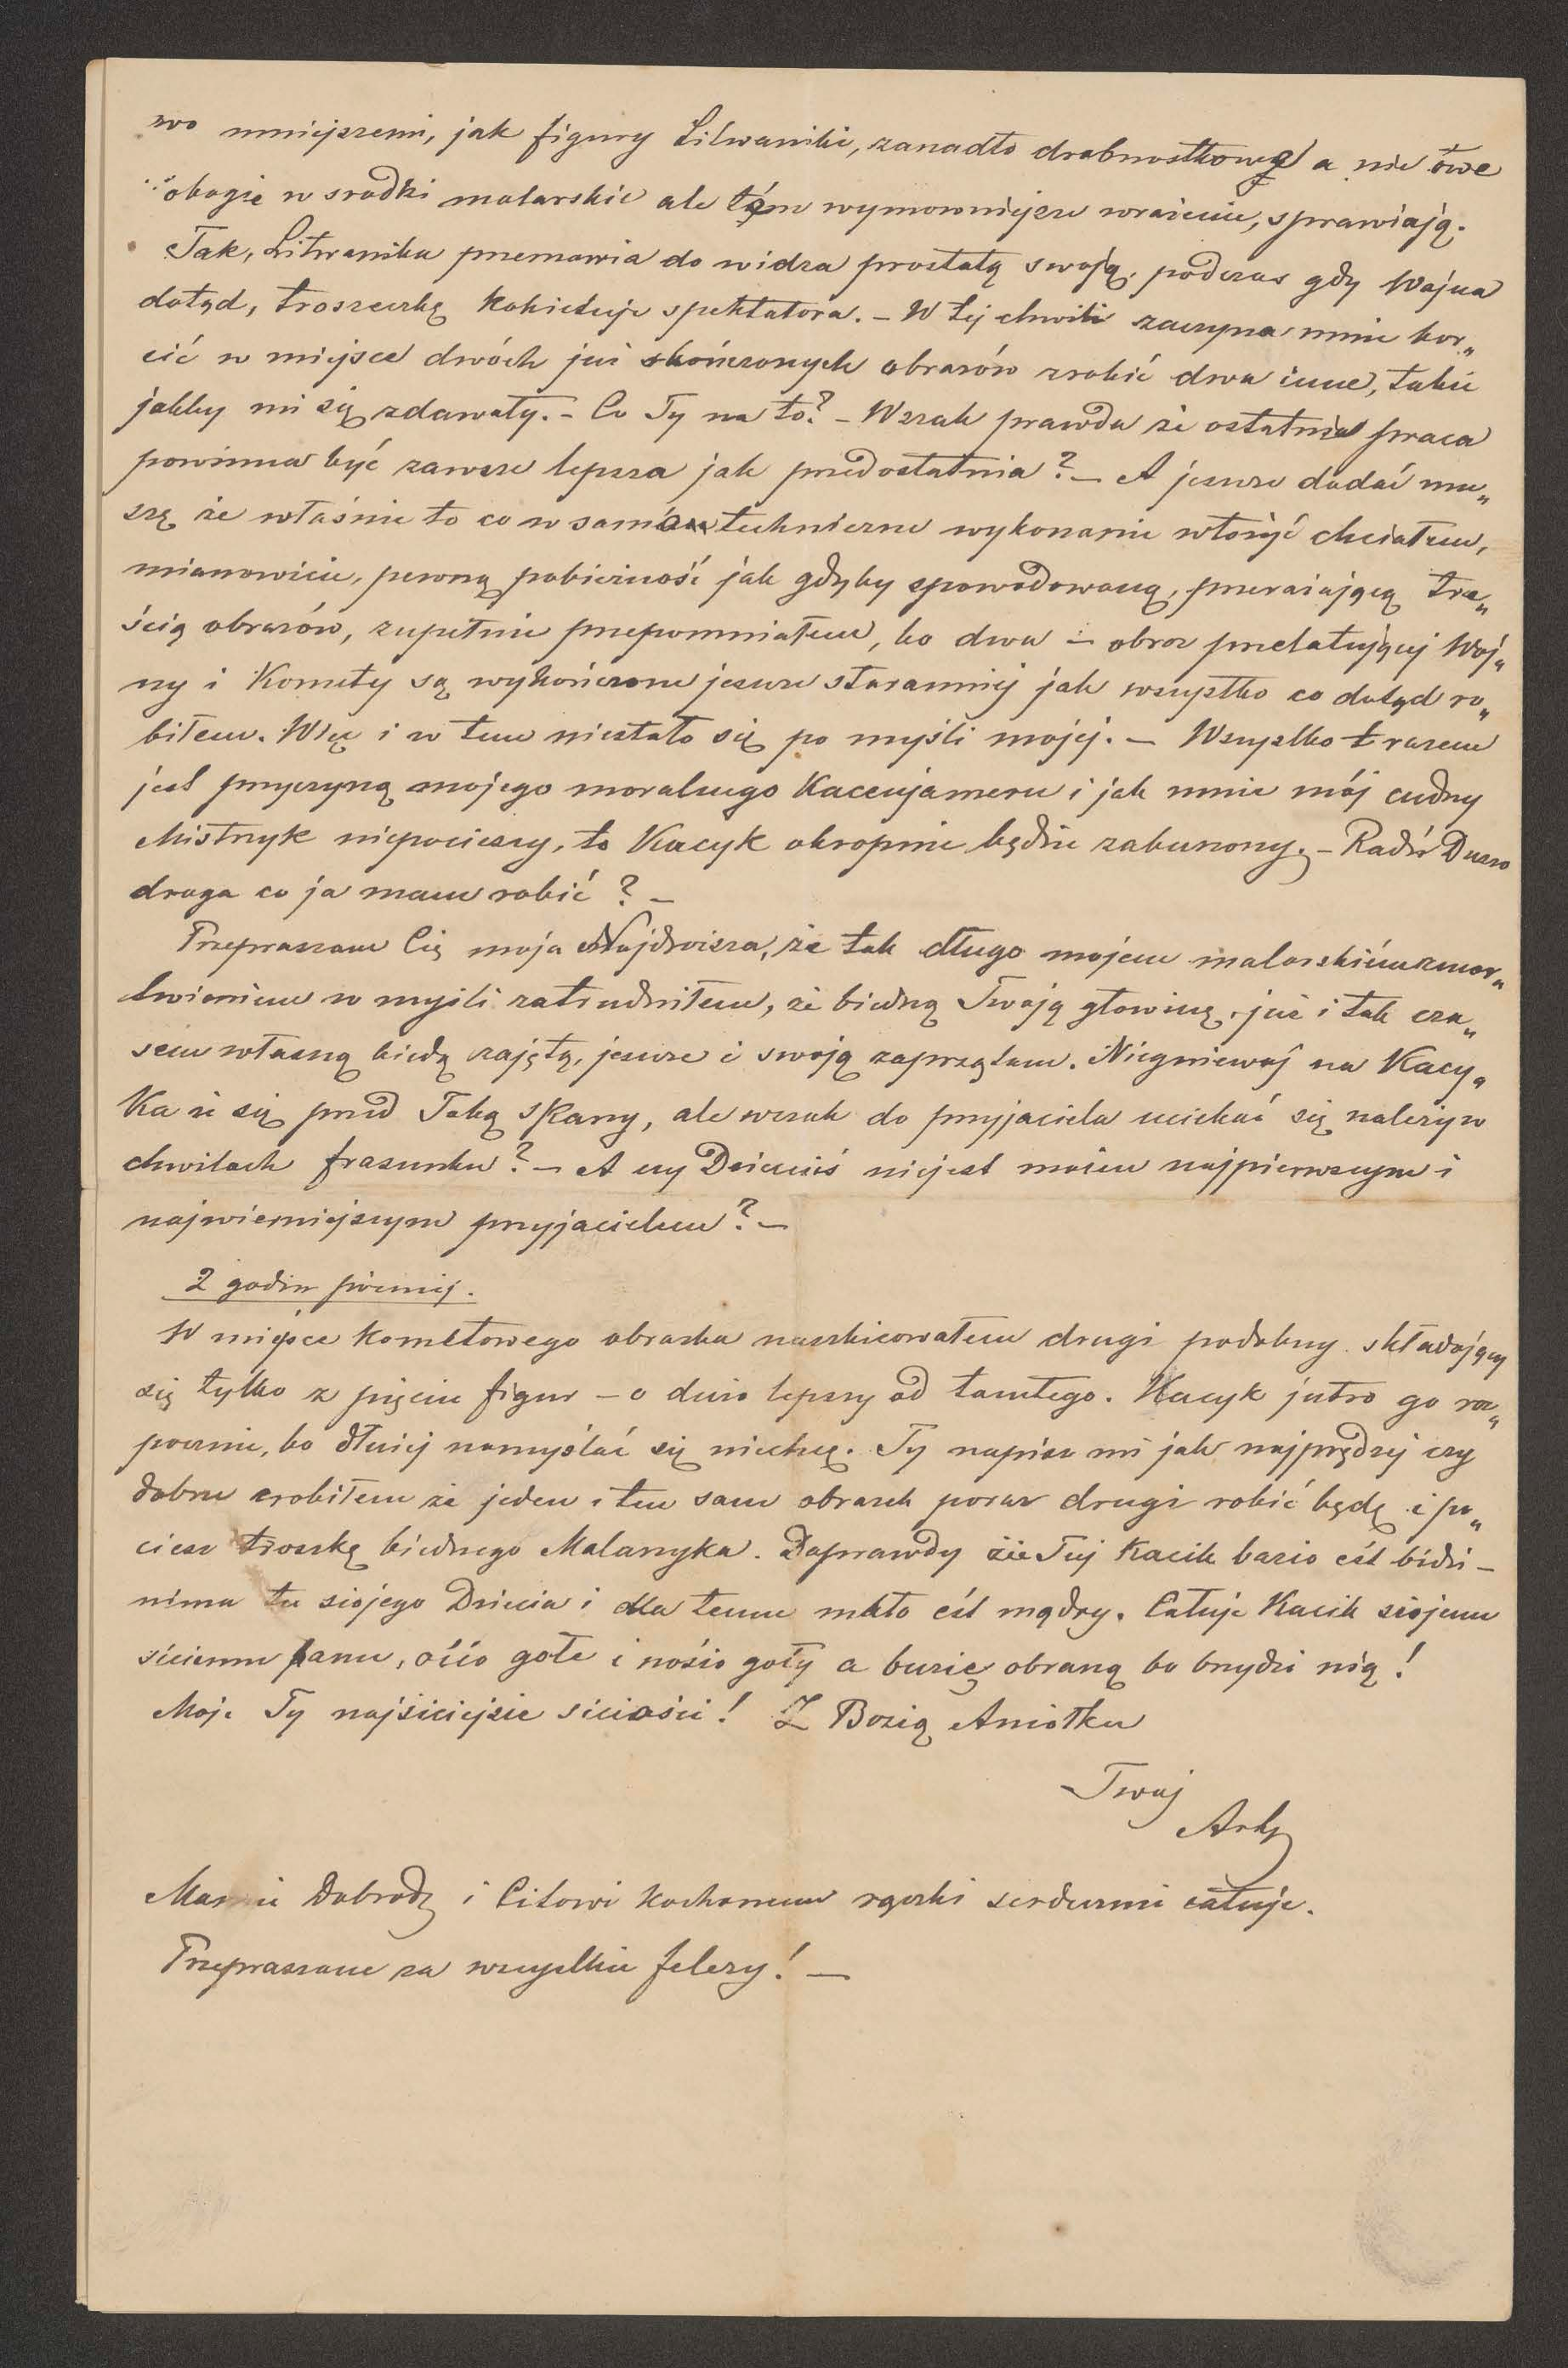 wo mniejszemi, jak figury Litwanikie, zanadto drobnostkową a nie owe
ubogie w srodki malarskie ale tém wymowniejsze wrażenie, sprawiają.
Tak, Litwanika przemawia do widza prostotą swoją, podczas gdy Wojna
dotąd, troszeczkę kokietuje spektatora. – W tej chwili zaczyna mnie kor„
cić w miejsce dwóch już skończonych obrazów zrobić dwa inne, takie
jakby mi się zdawały. – Co Ty na to? – Wszak prawda że ostatnia praca
powinna być zawsze lepsza jak przedostatnia? – A jeszcze dodać mu„
szę że właśnie to co w samém techniczne wykonanie włożyć chciałem,
mianowicie, pewną pobieżność jak gdyby spowodowaną, przerażającą tre„
ścią obrazów, zupełnie przepomniałem, bo dwa – obraz przelatującej Woj„
ny i Komety są wykończone jeszcze staranniej jak wszystko co dotąd ro„
biłem. Więc i w tem niestało się po myśli mojej. – Wszystko t razem
jest przyczyną mojego moralnego Kacenjameru i jak mnie mój cudny
Mistrzyk niepocieszy, to Kacyk okropnie będzie zaburzony. – Radź Duszo
droga co ja mam robić? –
Przepraszam Cię moja Najdroższa, że tak długo mojem malarskiém zmar„
twieniem w myśli zatrudniłem, że biedną Twoją głowinę, już i tak cza„
sem własną biedą zajętą, jeszcze i swoją zaprzątam. Niegniewaj na Kacy„
ka że się przed Tobą skarzy, ale wszak do przyjaciela uciekać się należy w
chwilach frasunku? – A czy Dzieciuś niejest moim najpierwszym i
najwierniejszym przyjacielem? –
2 godzin później.
W miejsce kometowego obrazka naszkicowałem drugi podobny składający
się tylko z pięciu figur – o dużo lepszy od tamtego. Kacyk jutro go roz„
pocznie, bo dłużej namyślać się niechcę. Ty napisz mi jak najprędzej czy
dobrze zrobiłem że jeden i ten sam obrazek poraz drugi robić będę i po„
ciesz troszkę biednego Malarzyka. Doprawdy zie Tuj Kacik bazio eśt bidzi –
nima tu siojego Dziecia i dla temu mało eśt mądry. Całuje Kacik siojemu
siciemu panu, oćió gołe i nosio goły a buzię obraną bo bzydzi nią!
Moje Ty najsiciejsie siciości! Z Bozią Aniołku
Twój
Arty
Mamie Dobrodz i Citowi kochanemu rączki serdecznie całuje.
Przepraszam za wszystkie felery! –